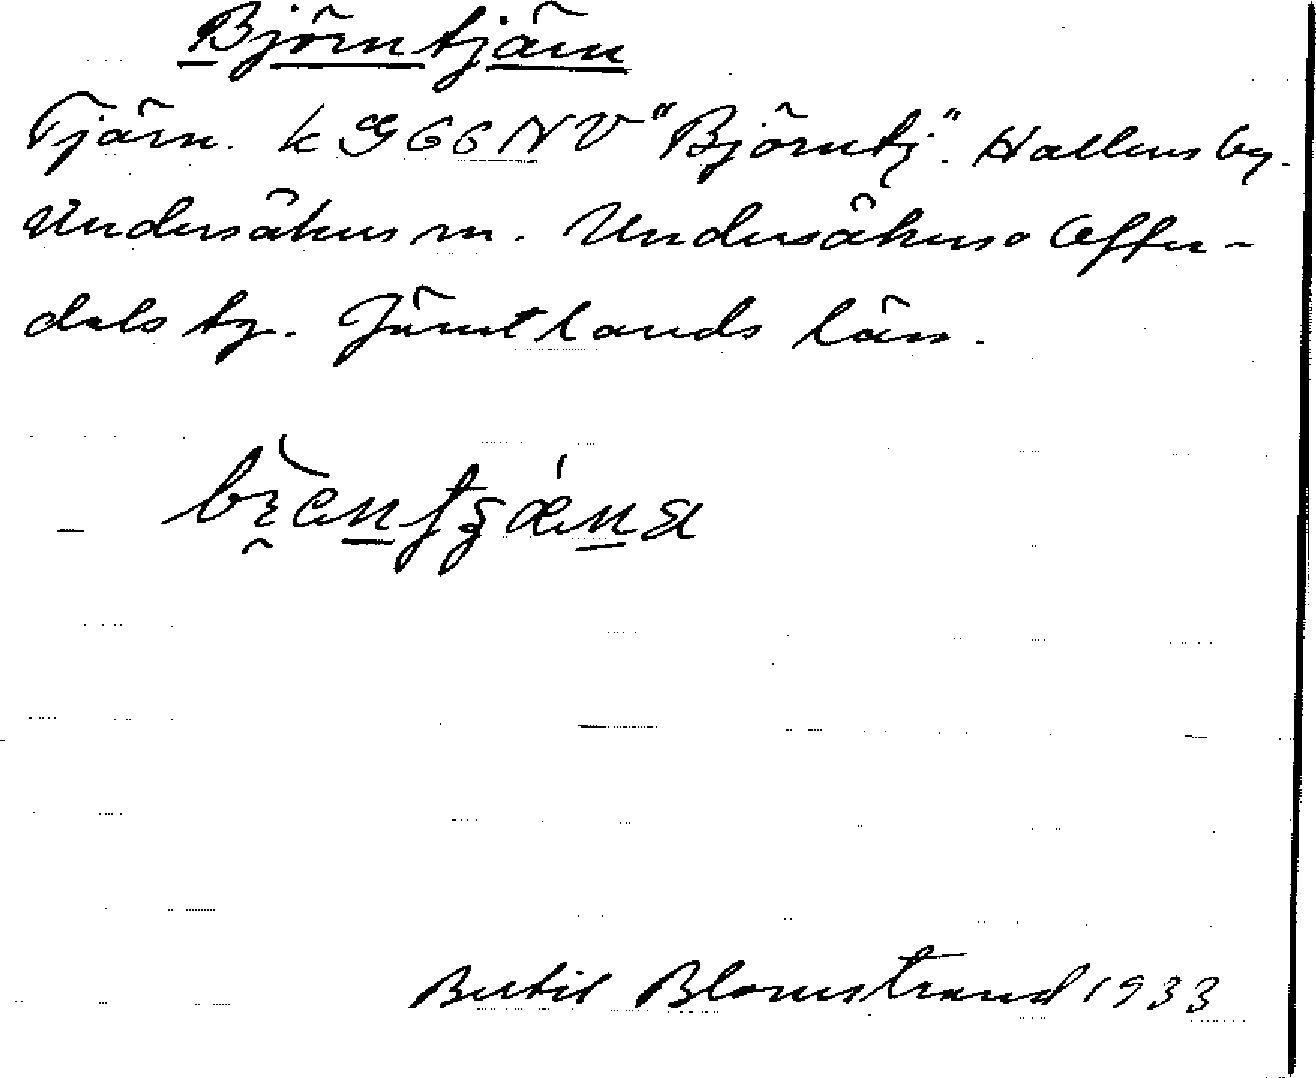 Björntjärn
Tjärn. k G66NV "Björntj". Hallens by.
Undersåkers sn. Undersåkers o Offer-
dals tg. Jämtlands län.
Bertil Blomstrand 1933